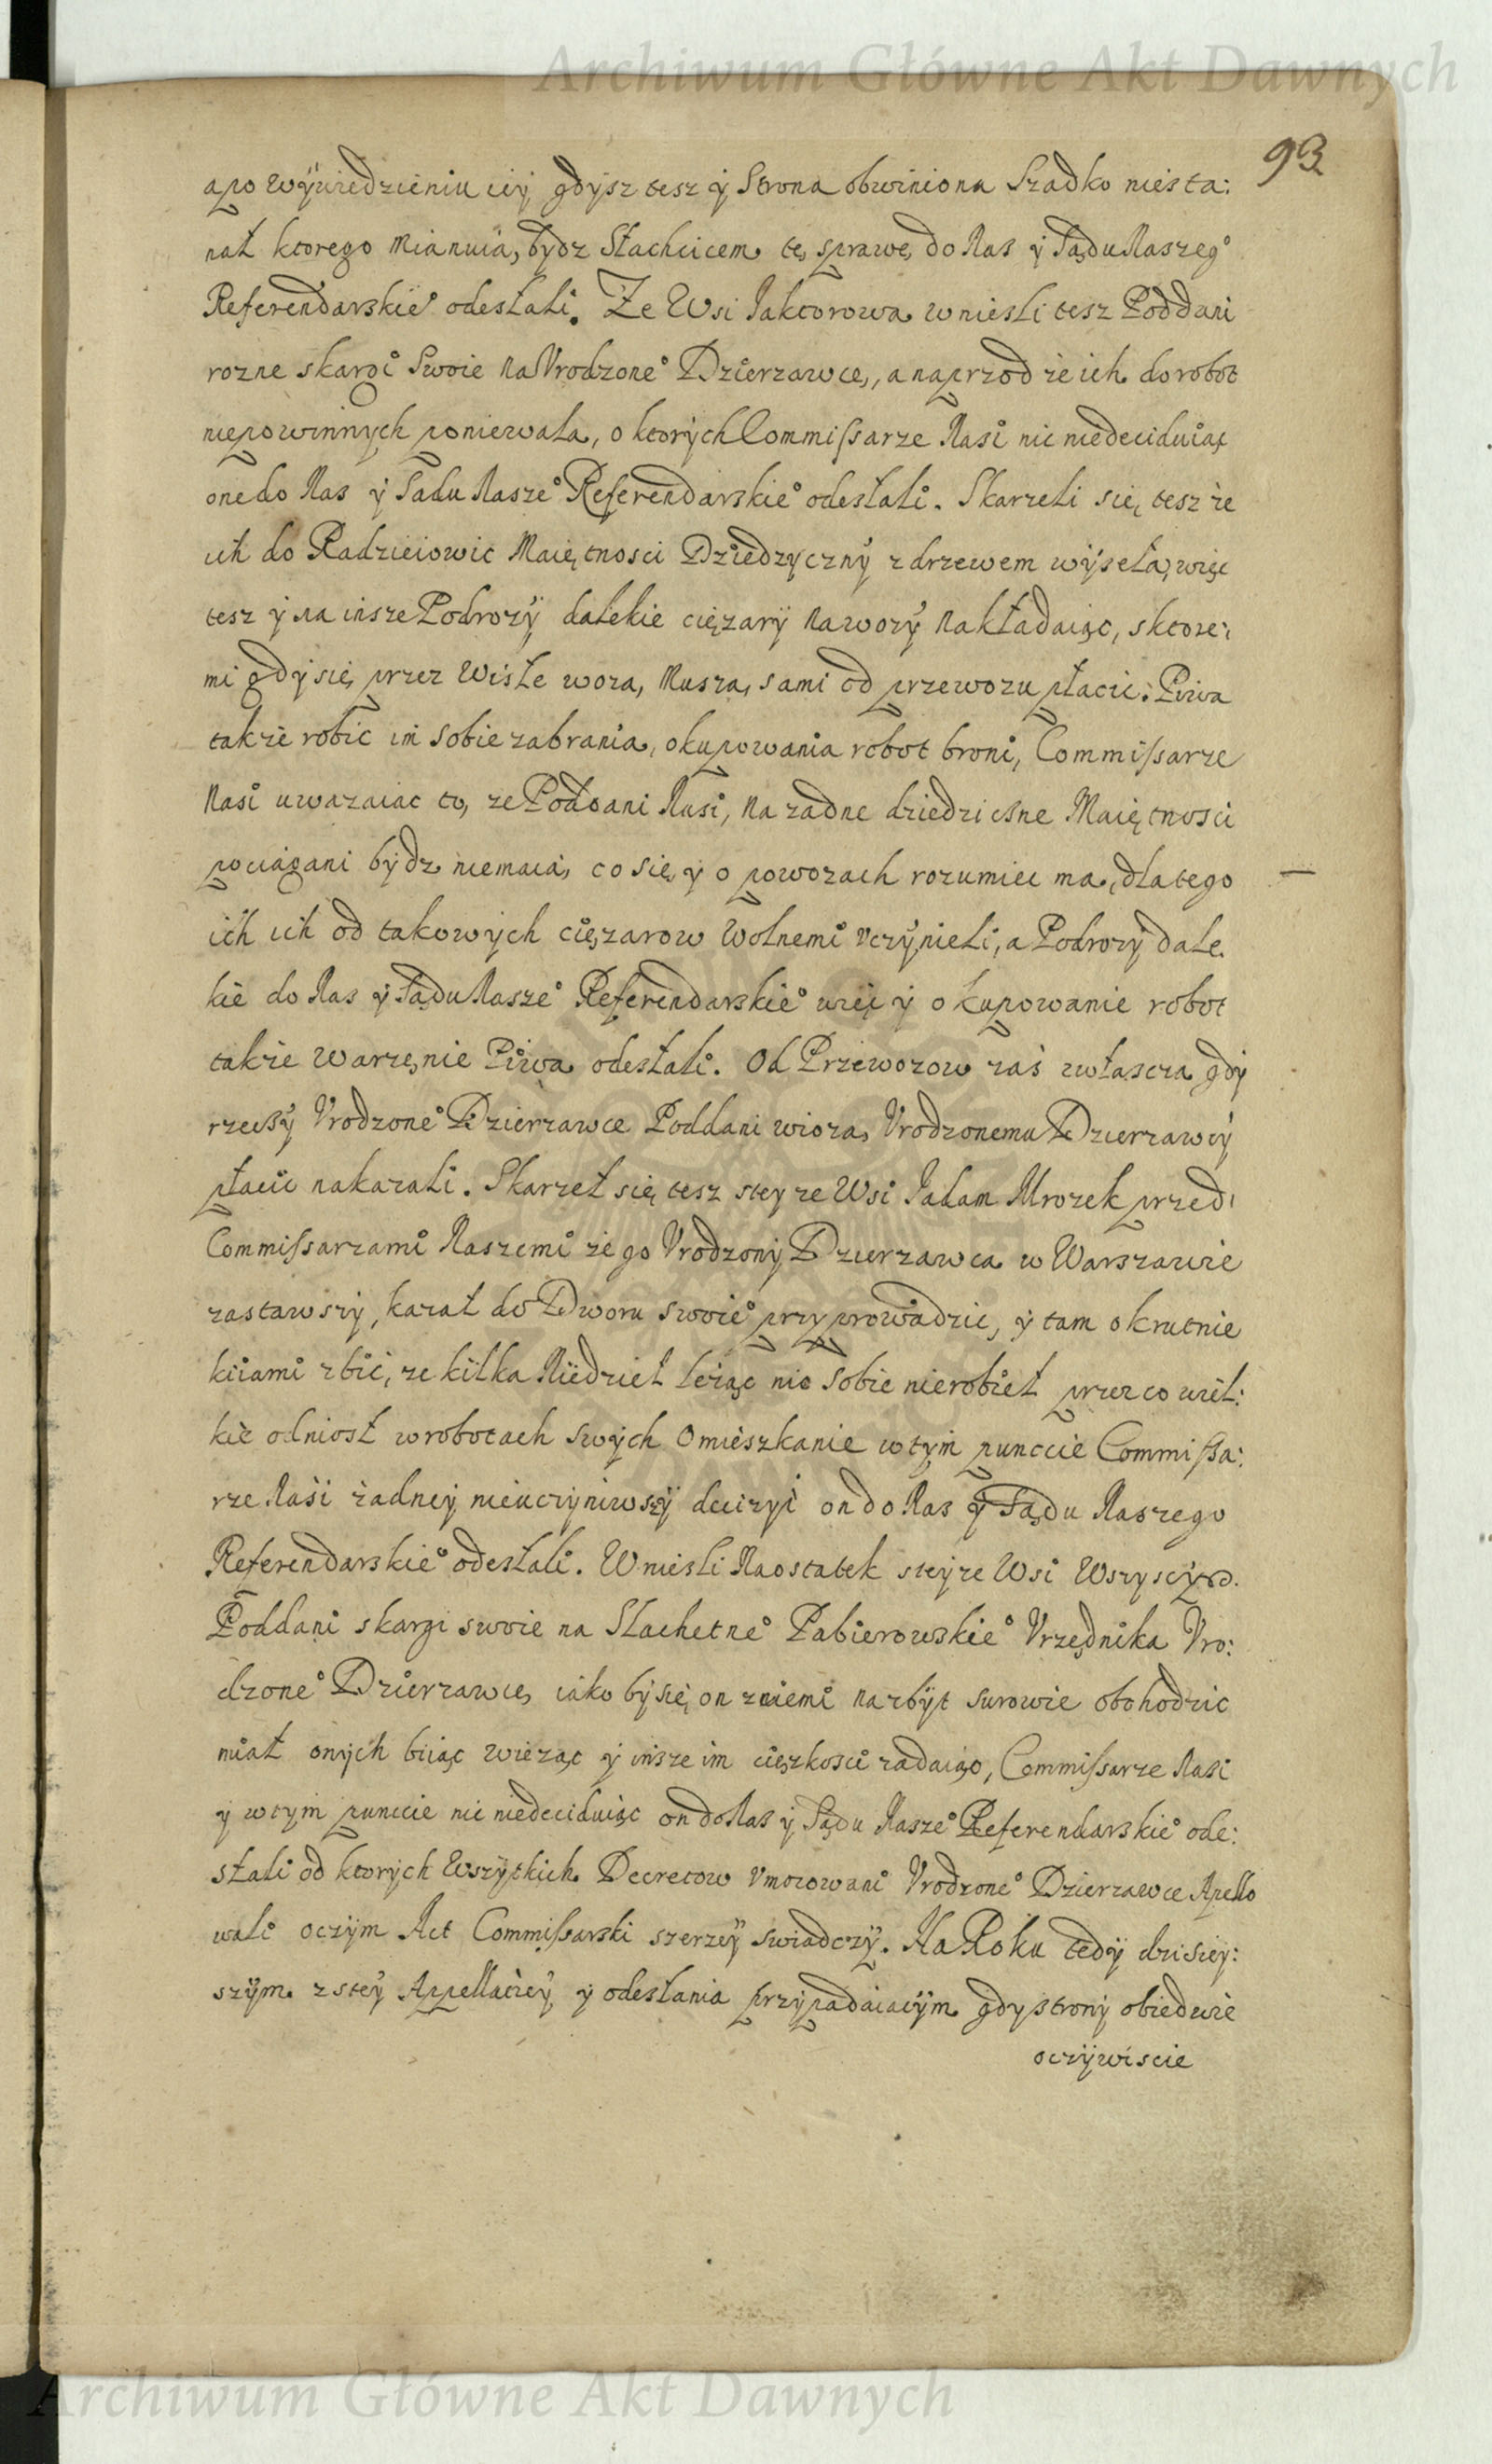 Archiwum Główne Akt Dawnych
93
a po wÿwiedzieniu iiÿ gdÿsz tesz ÿ Strona obwiniona Szadko niesta:
nął ktorego mianuią, bydz Slachcicem tę sprawę do Nas ÿ Sądu Naszeg°
Referendarskie° odesłali. Ze Wsi Jaktorowa wniesli tesz Poddani
rozne skargi Swoie na Vrodzone° Dzierzawcę, a naprzod że ich do robot
niepowinnych poniewala, o ktorych Commissarze Nasi nic niedeciduiąc
one do Nas ÿ Sądu Nasze° Referendarskie° odesłali. Skarzeli się tesz że
ich do Radzieiowic Maiętnosci Dziedzyczny z drzewem wÿseła, więc
tesz ÿ na insze Podrozÿ dalekie ciężarÿ na wozÿ nakładaiąc, s ktore:
mi gdÿ się przez Wisłę wożą, muszą sami od przewozu płacic: Piwa
także robic im sobie zabrania, okupowania robot broni, Commissarze
Nasi uwazaiac to, ze Poddani Nasi, na zadne dziedziczne Maiętnosci
pociągani bydz niemaią, co się ÿ o powozach rozumiec ma, dlatego
ich ich od takowych ciężarow wolnemi vczÿnieli, a Podrozÿ dale
kie do Nas ÿ Sądu Nasze° Referendarskie° więc ÿ okupowanie robot
także warzęnie Piwa odesłali. Od Przewozow zaś własczą gdÿ
rzeczÿ Vrodzone° Dzierzawce Poddani wiozą, Vrodzonemu Dzierzawcÿ
płacic nakazali. Skarzeł się tesz steÿze Wsi Jadam Mrozek przed
Commissarzami Naszemi że go Vrodzonÿ Dzierzawca w Warszawie
zastawszÿ, kazał do Dworu swoie° przyprowadzic, ÿ tam okrutnie
kiiami zbić, ze kilka Niedziel leżąc nic sobie nierobieł przez co wiel:
kie odniosł w robotach swÿch omieszkanie w tÿm punccie Commissa:
rze Nasi żadneÿ nieuczÿniwszÿ decizÿi on do Nas ÿ Sądu Naszego
Referendarskie° odesłali. Wniesli Naostatek steÿze Wsi Wszyscÿ
Poddani skargi swoie na Slachetne° Pabierowskie° Vrzędnika Vro:
dzone° Dzierzawcę, iako bÿ się on z niemi nazbÿt surowie obchodzic
miał onÿch biiąc więżąc ÿ insze im ciężkosci zadaiąc, Commissarze Nasi
ÿ w tÿm punccie nic niedeciduiąc on do Nas ÿ Sądu Nasze° Referendarskie° ode:
słali od ktorÿch wszÿtkich Decretow vmocowani Vrodzone° Dzierzawce Apello
wali o czÿm Act Commissarski szerzeÿ swiadczÿ. Na Roku tedÿ dzisieÿ:
szÿm z steÿ Appellacieÿ ÿ odesłania przÿpadaiacÿm gdÿ stronÿ obiedwie
oczÿwiscie
Archiwum Główne Akt Dawnych